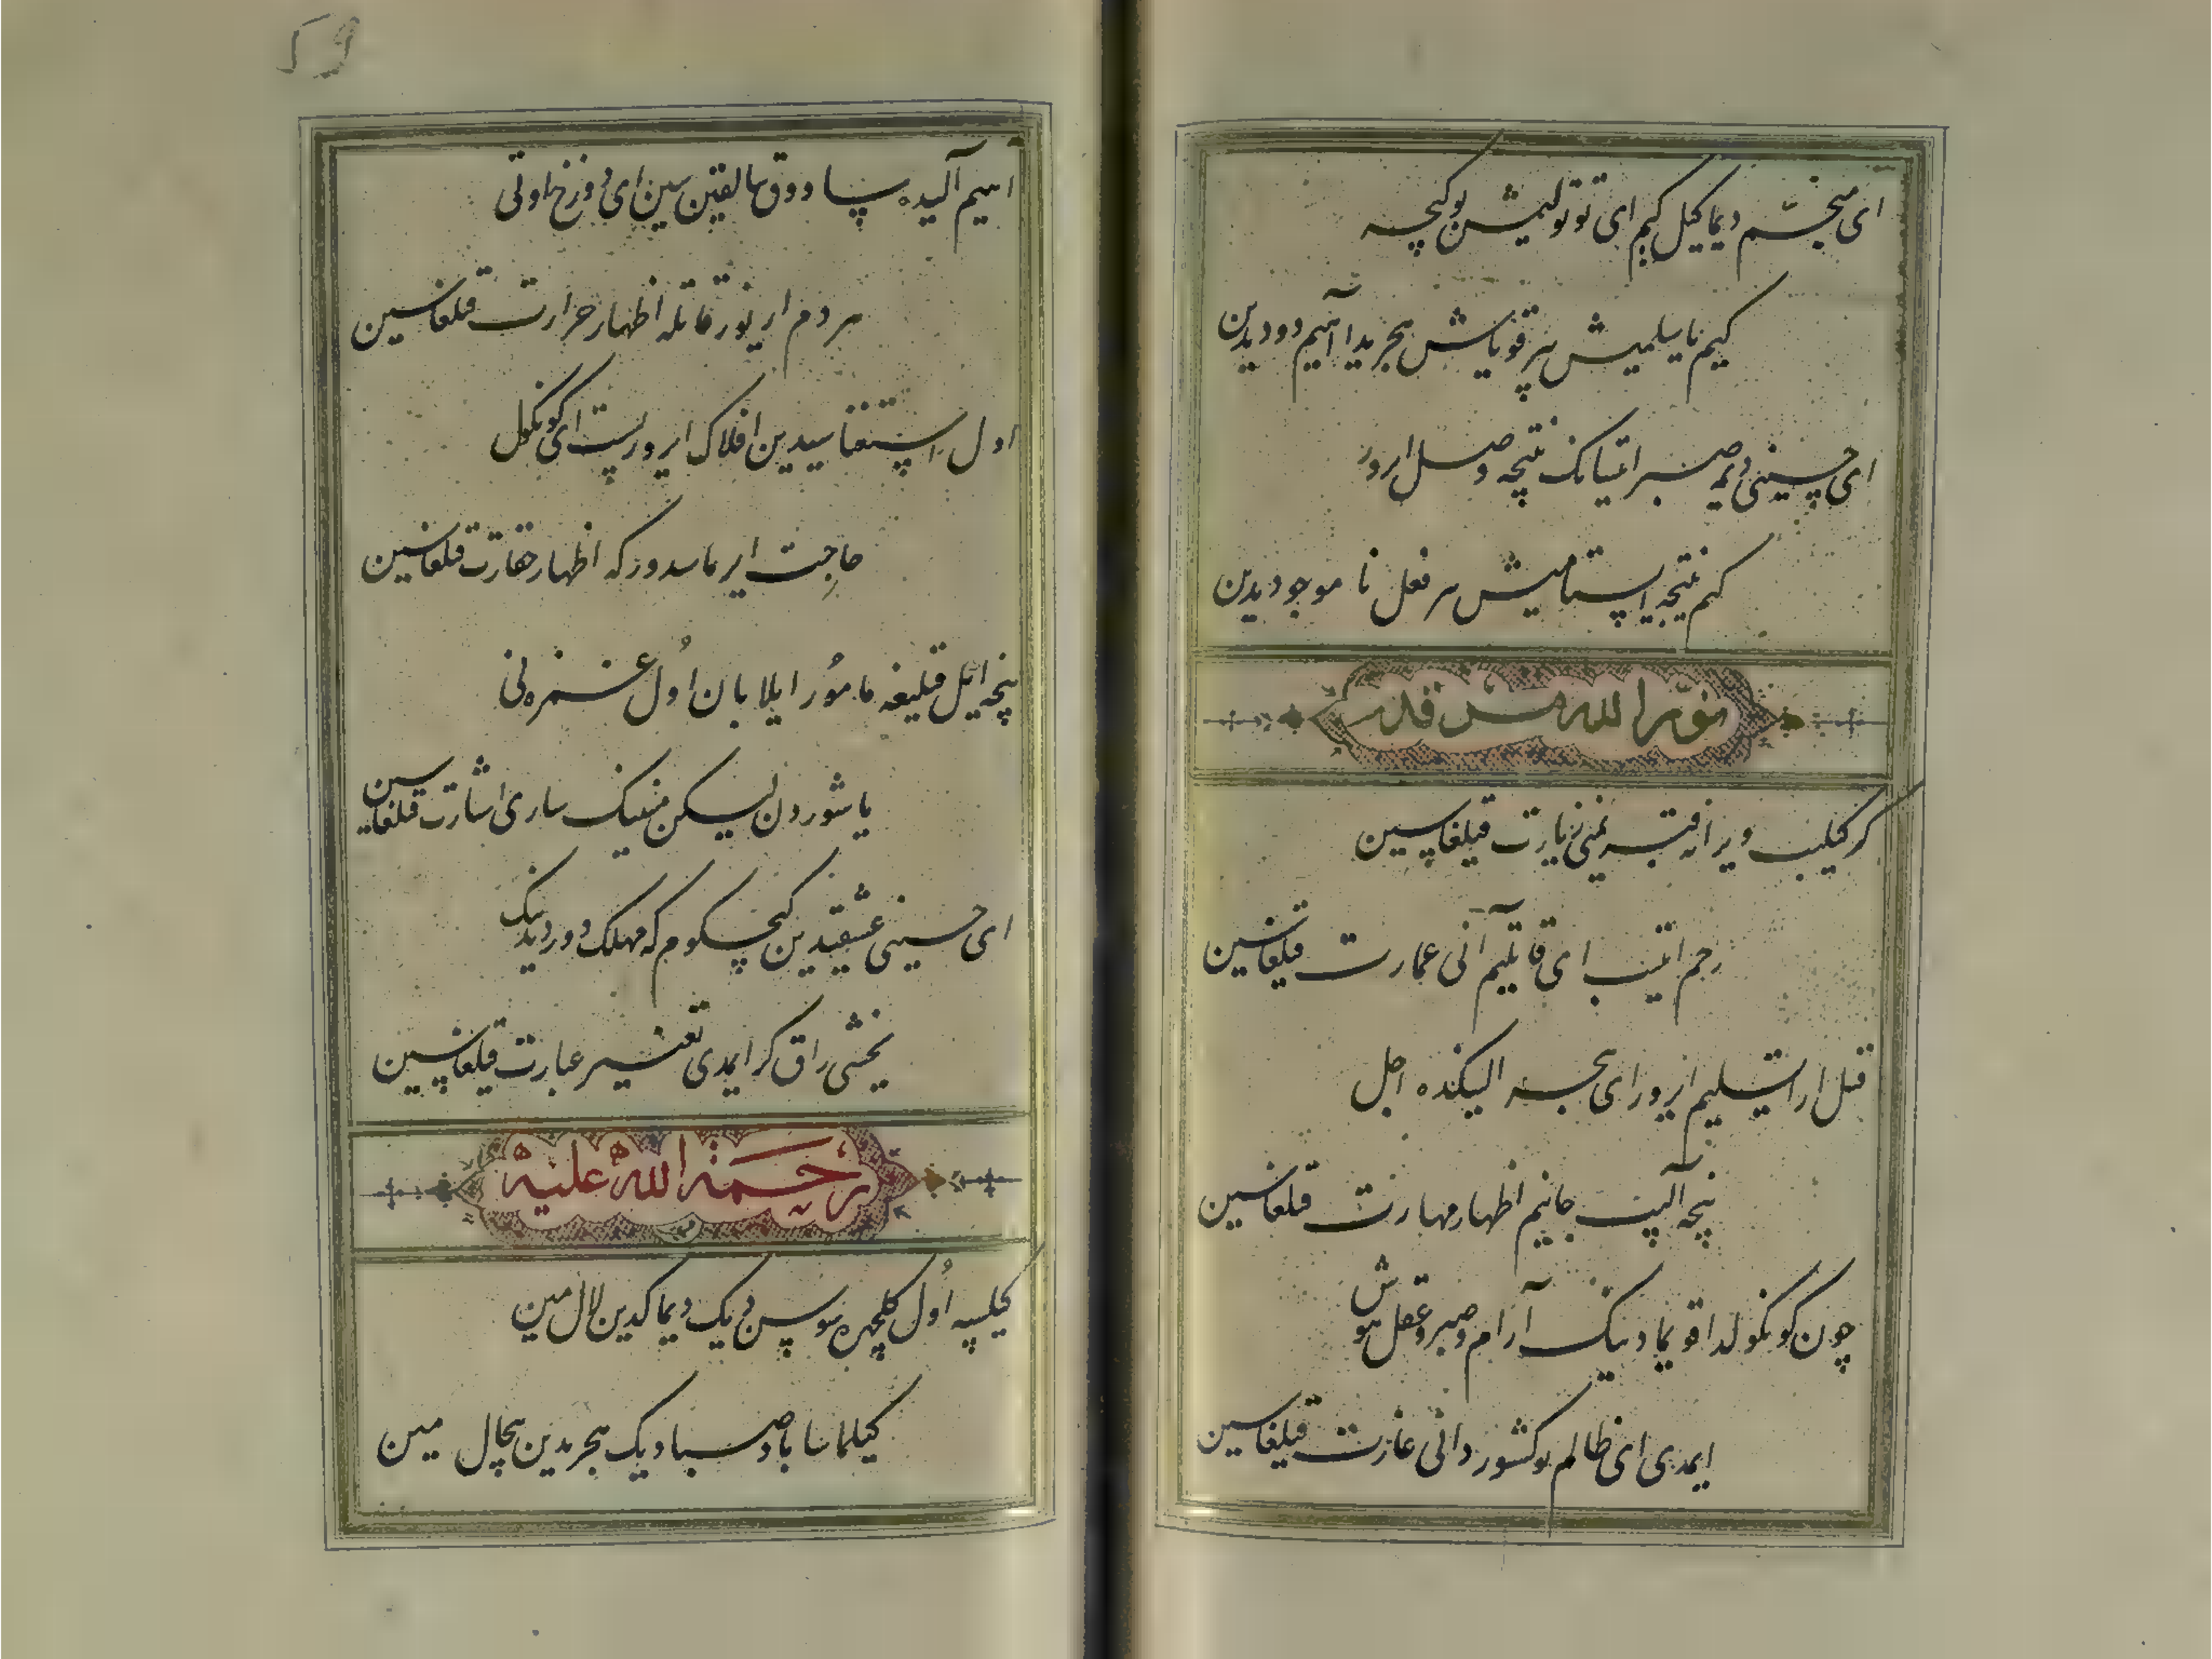 ای منجّم دیماکیل کیم ای توتولمیش بو کیچه
کیم ناییلمیش بیر قویاش هجریدا آهیم دودیدین
ای حسینی دیمه صبر ایتیانک نتیجه وصل ایرور
کیم نتیجه ایستامیش بیر فعل نا موجودیدین
نوّر الله مرقده
کر کیلیب ویرانه قبریمنی زیارت قیلغاسین
رحم ایتیب ای قاتلیم آنی عمارت قیلغاسین
قتل ارا تسلیم ایرور ای هجر الیکنده اجل
نیچه آلیب جانیم اظهار مهارت قیلغاسین
چون کونکولدا قویمادینک آرام و صبر و عقل و هوش
ایمدی ای ظالم بو کشور دانی غارت قیلغاسین
۵۹
آهیم آلیده بسا دوق سالقین سین ای دوزخ اوتی
هر دم ار یوز قاتله اظهار حرارت قیلغاسین
اول استغناسیدین افلاک ایرور پست ای کونکول
حاجت ایرماسدور که اظهار حقارت قیلغاسین
نیچه ایل قتلیغه مامور ایلابان اول غمزه نی
یاشوردون لیکن مینینک ساری اشارت قیلغاسین
ای حسینی عشقیدین کیچکوم که مهلک دور دیدینک
یخشی راق کر ایمدی تغییر عبارت قیلغاسین
رحمة الله علیه
کیلسه اول کلچهره سوسن دیک دیماکدین لال مین
کیلماسا باد صبا دیک هجریدین بیحال مین